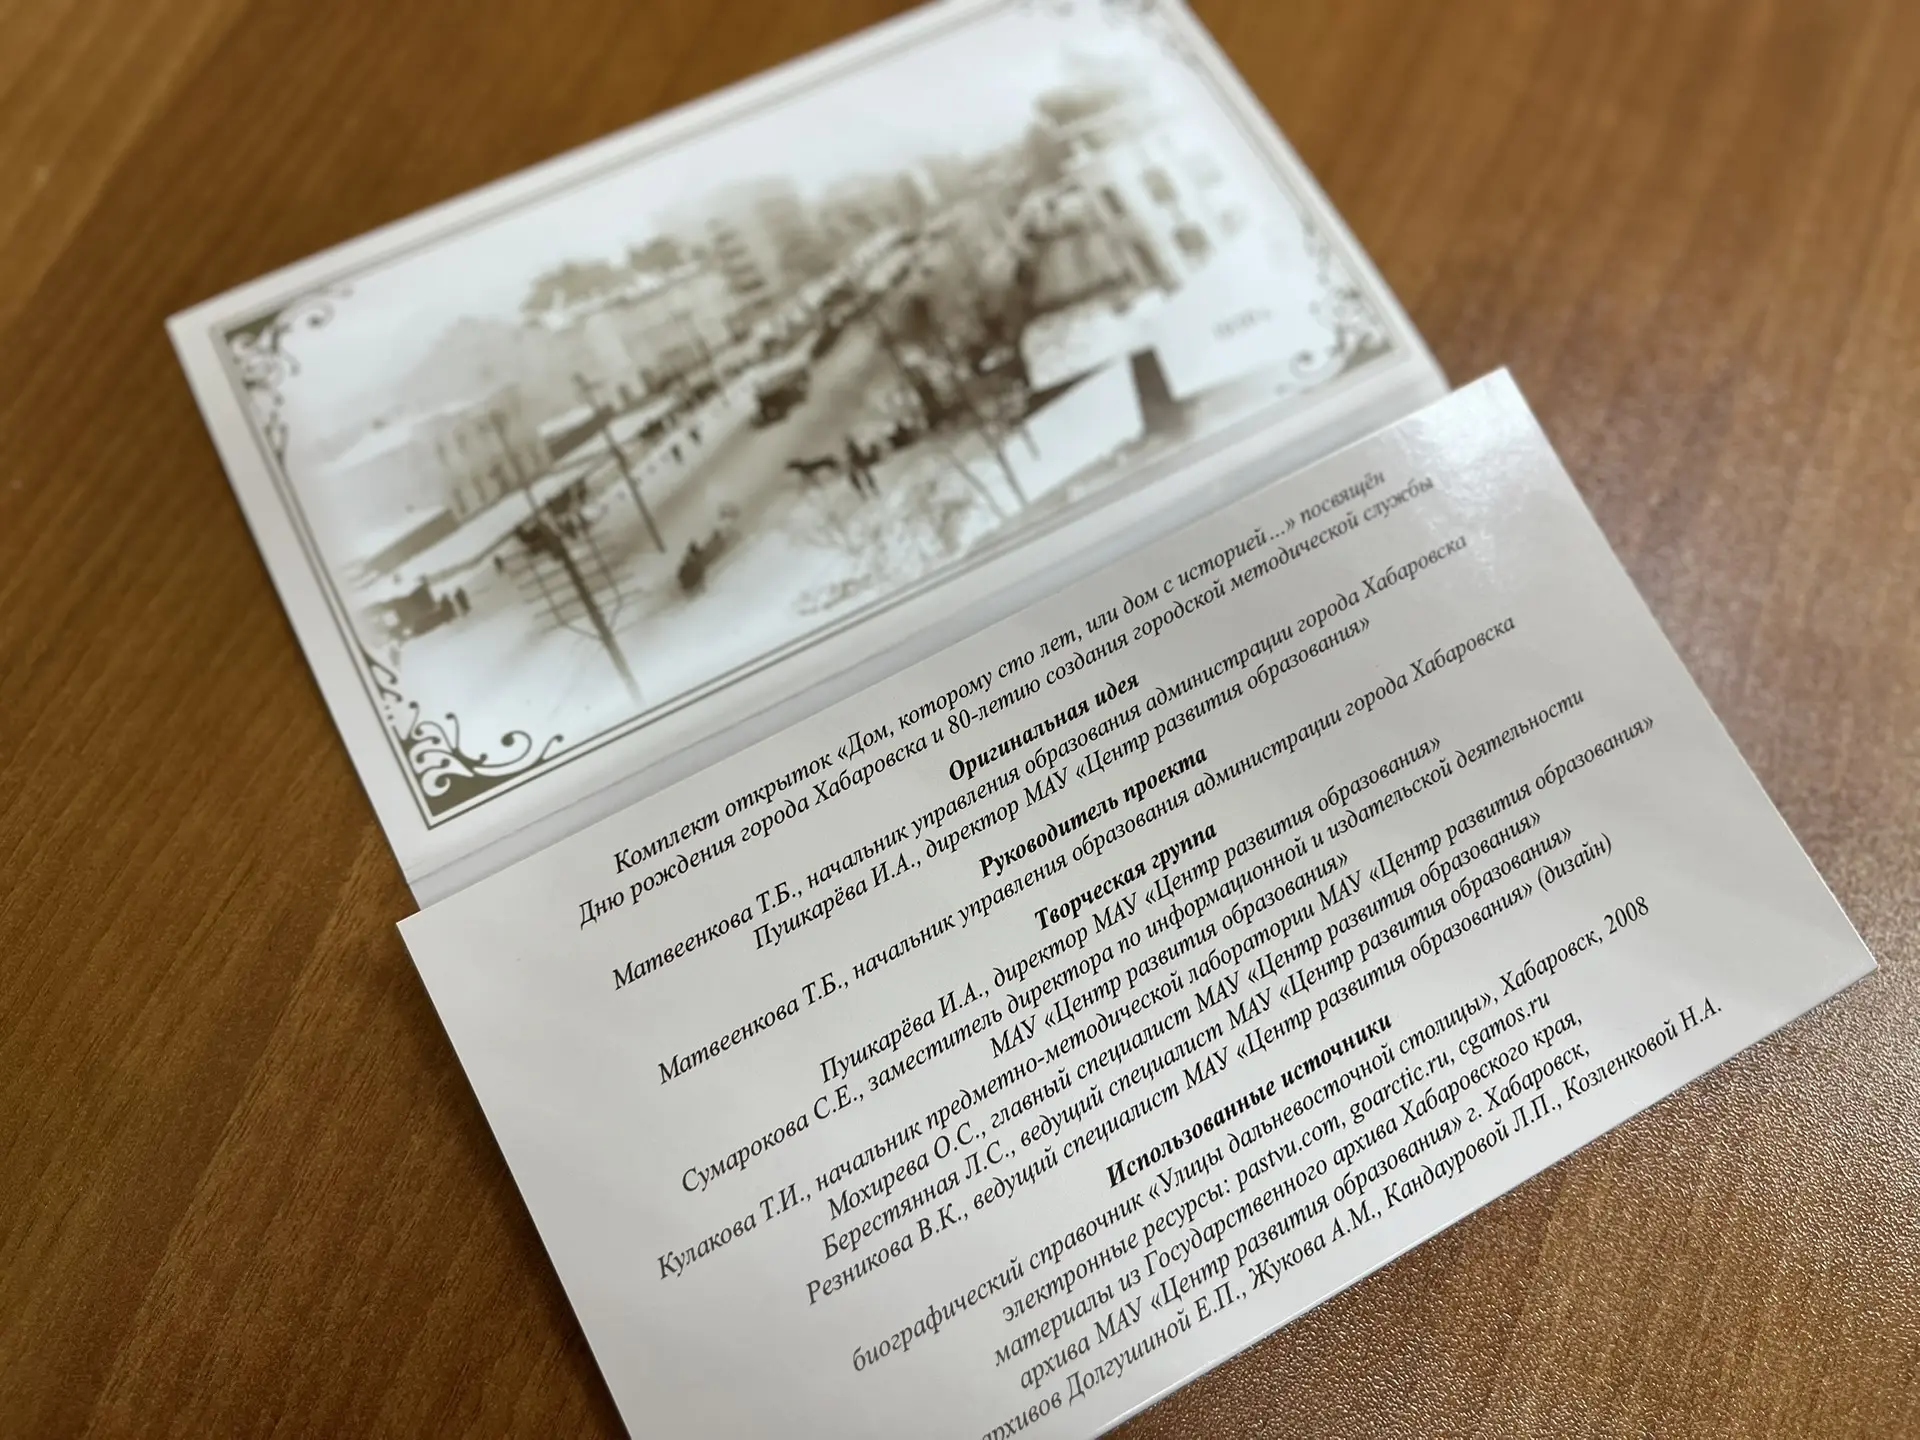 Комплект открыток «Дом, которому сто лет, или дом с историей...» посвящён
Дню рождения города Хабаровска и 80-летию создания городской методической службы
Оригинальная идея
Матвеенкова Т.Б., начальник управления образования администрации города Хабаровска
Пушкарёва И.А., директор МАУ «Центр развития образования»
Руководитель проекта
Матвеенкова Т.Б., начальник управления образования администрации города Хабаровска
Творческая группа
Пушкарёва И.А., директор МАУ «Центр развития образования»
Сумарокова С.Е., заместитель директора по информационной и издательской деятельности
МАУ «Центр развития образования»
Кулакова Т.И., начальник предметно-методической лаборатории МАУ «Центр развития образования»
Мохирева О.С., главный специалист МАУ «Центр развития образования»
Берестянная Л.С., ведущий специалист МАУ «Центр развития образования»
Резникова В.К., ведущий специалист МАУ «Центр развития образования» (дизайн)
Использованные источники
биографический справочник «Улицы дальневосточной столицы», Хабаровск, 2008
электронные ресурсы: pastvu.com, goarctic.ru, cgamos.ru
материалы из Государственного архива Хабаровского края,
архива МАУ «Центр развития образования» г. Хабаровск,
архивов Долгушиной Е.П., Жукова А.М., Кандауровой Л.П., Козленковой Н.А.